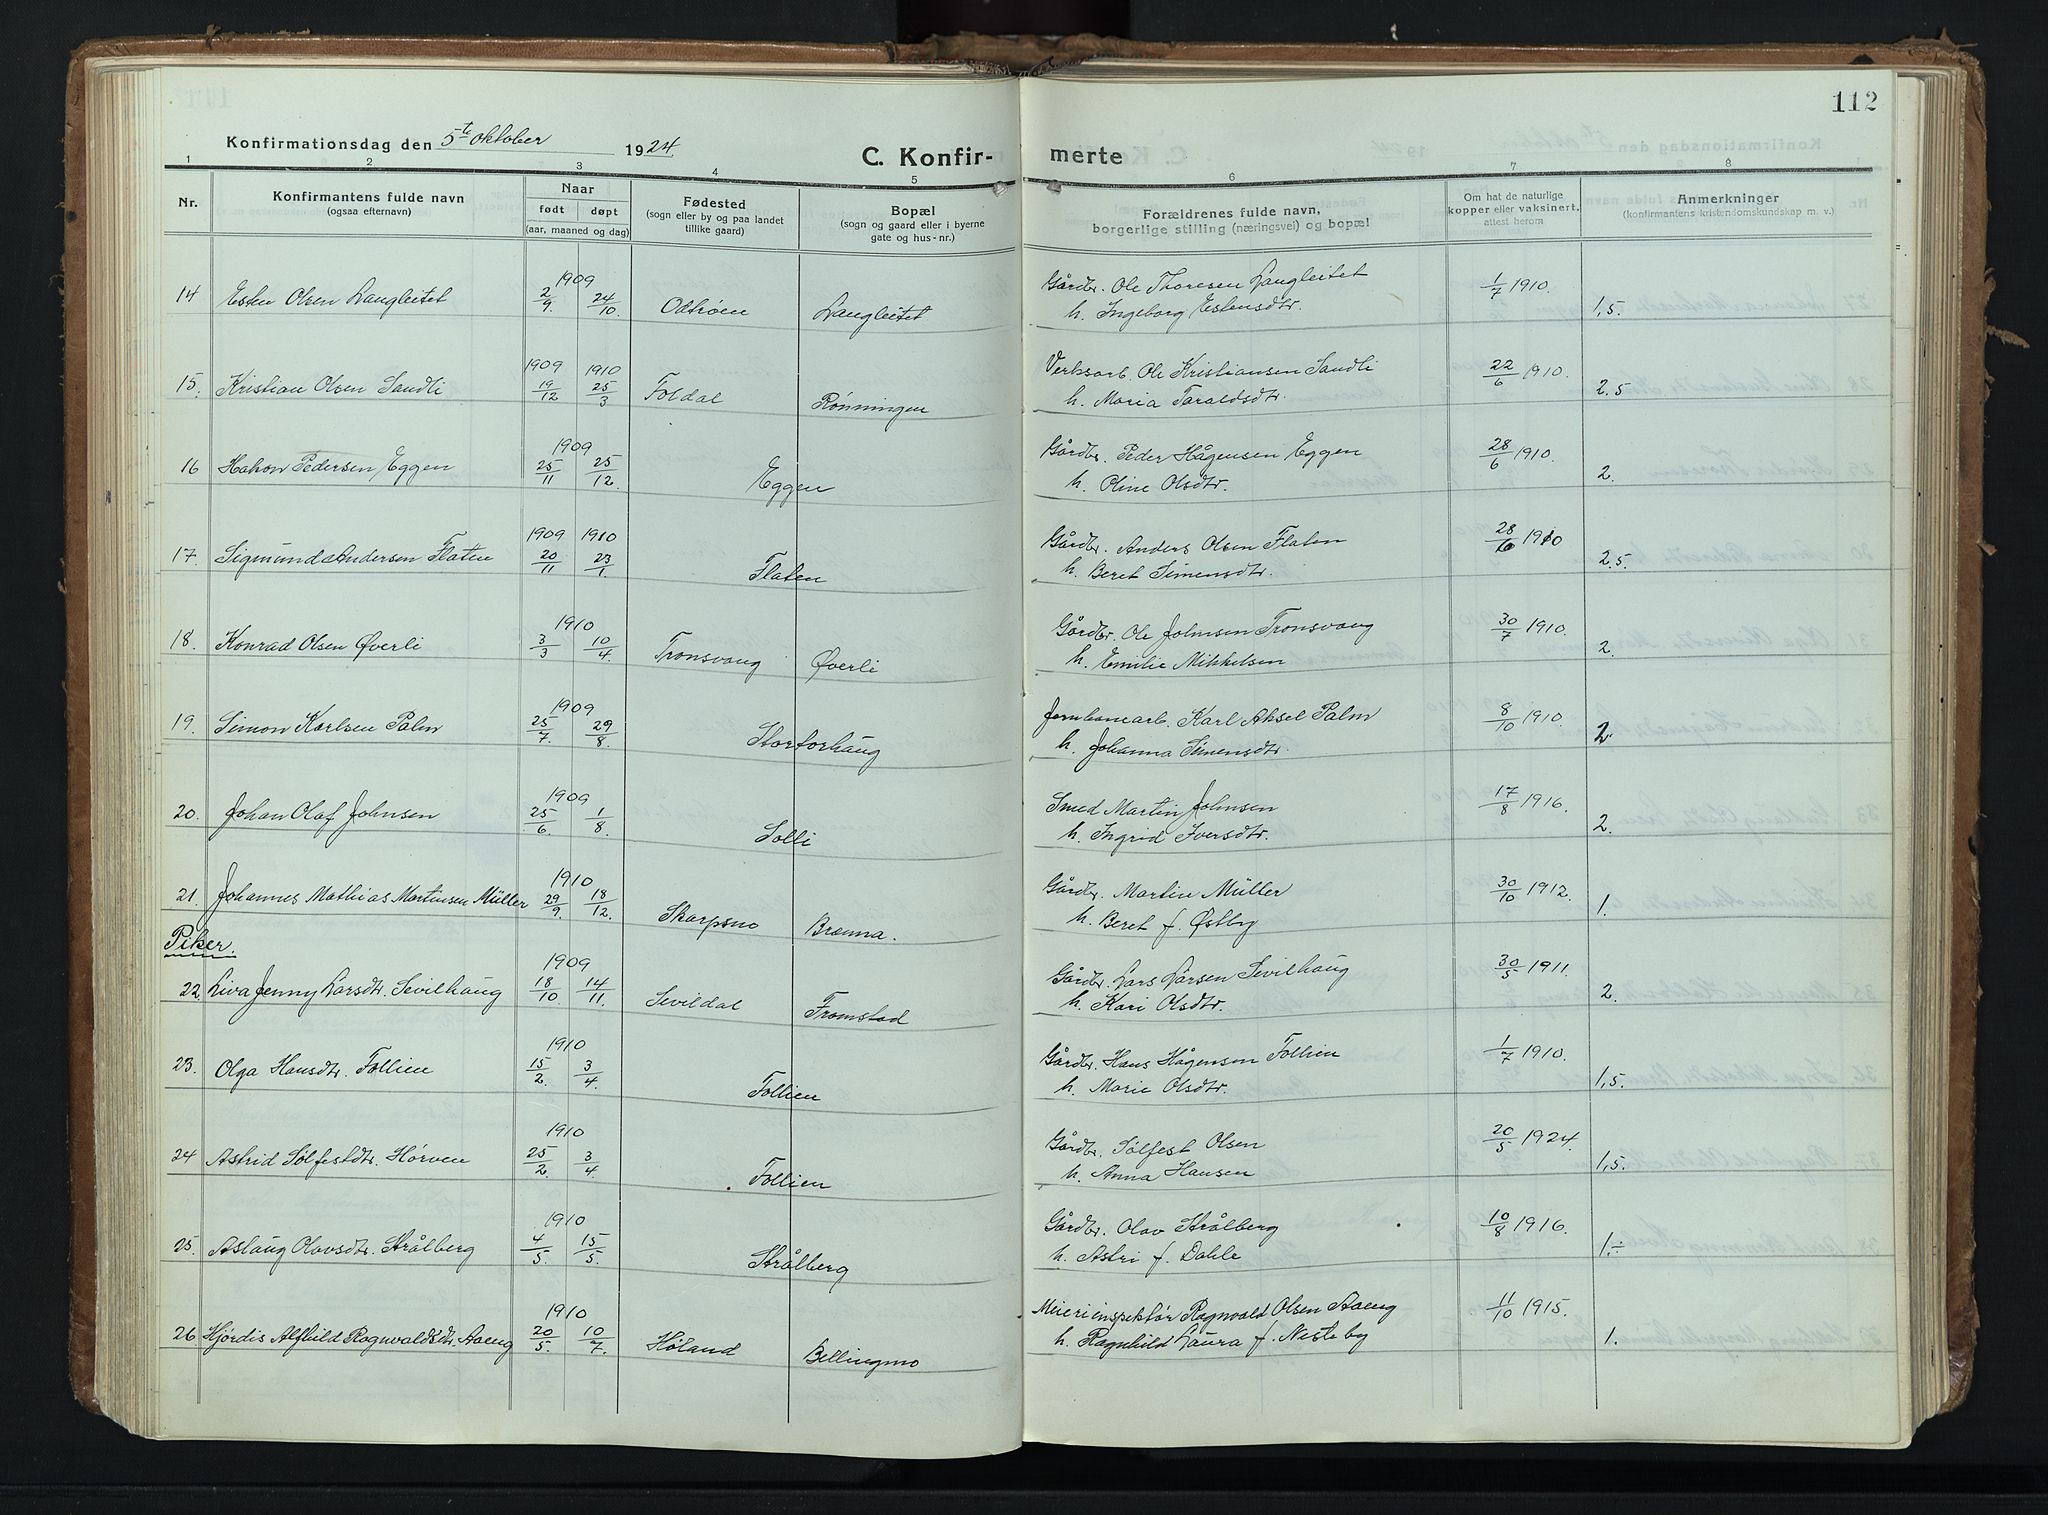 112
Konfirmationsdag den 5te oktober 1924
C. Konfir-
merte
1 2 3 4 5 6 7 8
Nr.
Konfirmantens fulde navn
(ogsaa efternavn)
Naar
født døpt
(aar, maaned og dag)
Fødested
(sogn eller by og paa landet
tillike gaard)
Bopæl
(sogn og gaard eller i byerne
gate og hus-nr.)
Forældrenes fulde navn,
borgerlige stilling (næringsvei) og bopæl
Om hat de naturlige
kopper eller vaksinert,
attest herom
Anmerkninger
(konfirmantens kristendomskundskap m. v.)
14 Esten Olsen Langleitet 1909 2/9. 24/10 Odtröen Langleitet Gårdbr. Ole Thoresen Langleitet 1/7 1910. 1,5.
h. Ingeborg Estensdtr.
15. Kristian Olsen Sandli 1909 19/12 1910 25/3 Foldal Rønningen Verksarb. Ole Kristiansen Sandli 22/6 1910. 2,5
h. Maria Taraldsdtr.
16 Hakon Pedersen Eggen 1909 25/11 25/12. Eggen Gårdbr. Peder Hågensen Eggen 28/6 1910. 2.
h. Oline Olsdtr.
17. Sigmund Andersen Flaten 1909 20/11 1910 23/1. Flaten Gårdbr. Anders Olsen Flaten 28/6 1910 2.5.
h. Beret Simensdtr.
18. Konrad Olsen Øverli 1910 3/3 10/4. Tronsvang Øverli Gårdbr. Ole Johnsen Tronsvang 30/7 1910. 2.
h. Emilie Mikkelsen
19. Simon Karlsen Palm 1909 25/7. 29/8. Storforhaug Jernbanearb. Karl Aksel Palm 8/10 1910. 2.
h. Johanna Simensdtr.
20. Johan Olaf Johnsen 1909 25/6. 1/8. Solli Smed Martin Johnsen 17/8 1916. 2.
h. Ingrid Iversdtr.
21. Johannes Mathias Martinsen Müller 1910 29/9. 18/12. Skarpsno Brænna. Gårdbr. Martin Müller 30/10 1912. 1.
h. Beret f. Østby
Piker.
22 Liva Jenny Larsdtr. Sevilhaug 1909 18/10. 14/11. Sevildal Tromstad Gårdbr. Lars Larsen Sevilhaug 30/5 1911. 2.
h. Kari Olsdtr.
23. Olga Hansdtr. Follien 1910 15/2. 3/4. Follien Gårdbr. Hans Hågensen Follien 1/7 1910. 1,5.
h. Marie Olsdtr.
24 Astrid Sølfestdtr. Hørven 1910 25/2. 3/4. Follien Gårdbr. Sølfest Olsen 20/5 1924. 1,5.
h. Anna Hansen
25. Aslaug Olavsdtr. Strålberg 1910 4/5. 15/5. Strålberg Gårdbr. Olav Strålberg 10/8 1916. 1.÷
h. Astri f. Dahle
26 Hjördis Alfhild Ragnvaldsdtr. Aaeng 1910 20/5. 10/7. Høland Bellingmo Meieriinspektør Ragnvald Olsen Aaeng 11/10 1915. 1.
h. Ragnhild Laura f. Nesteby